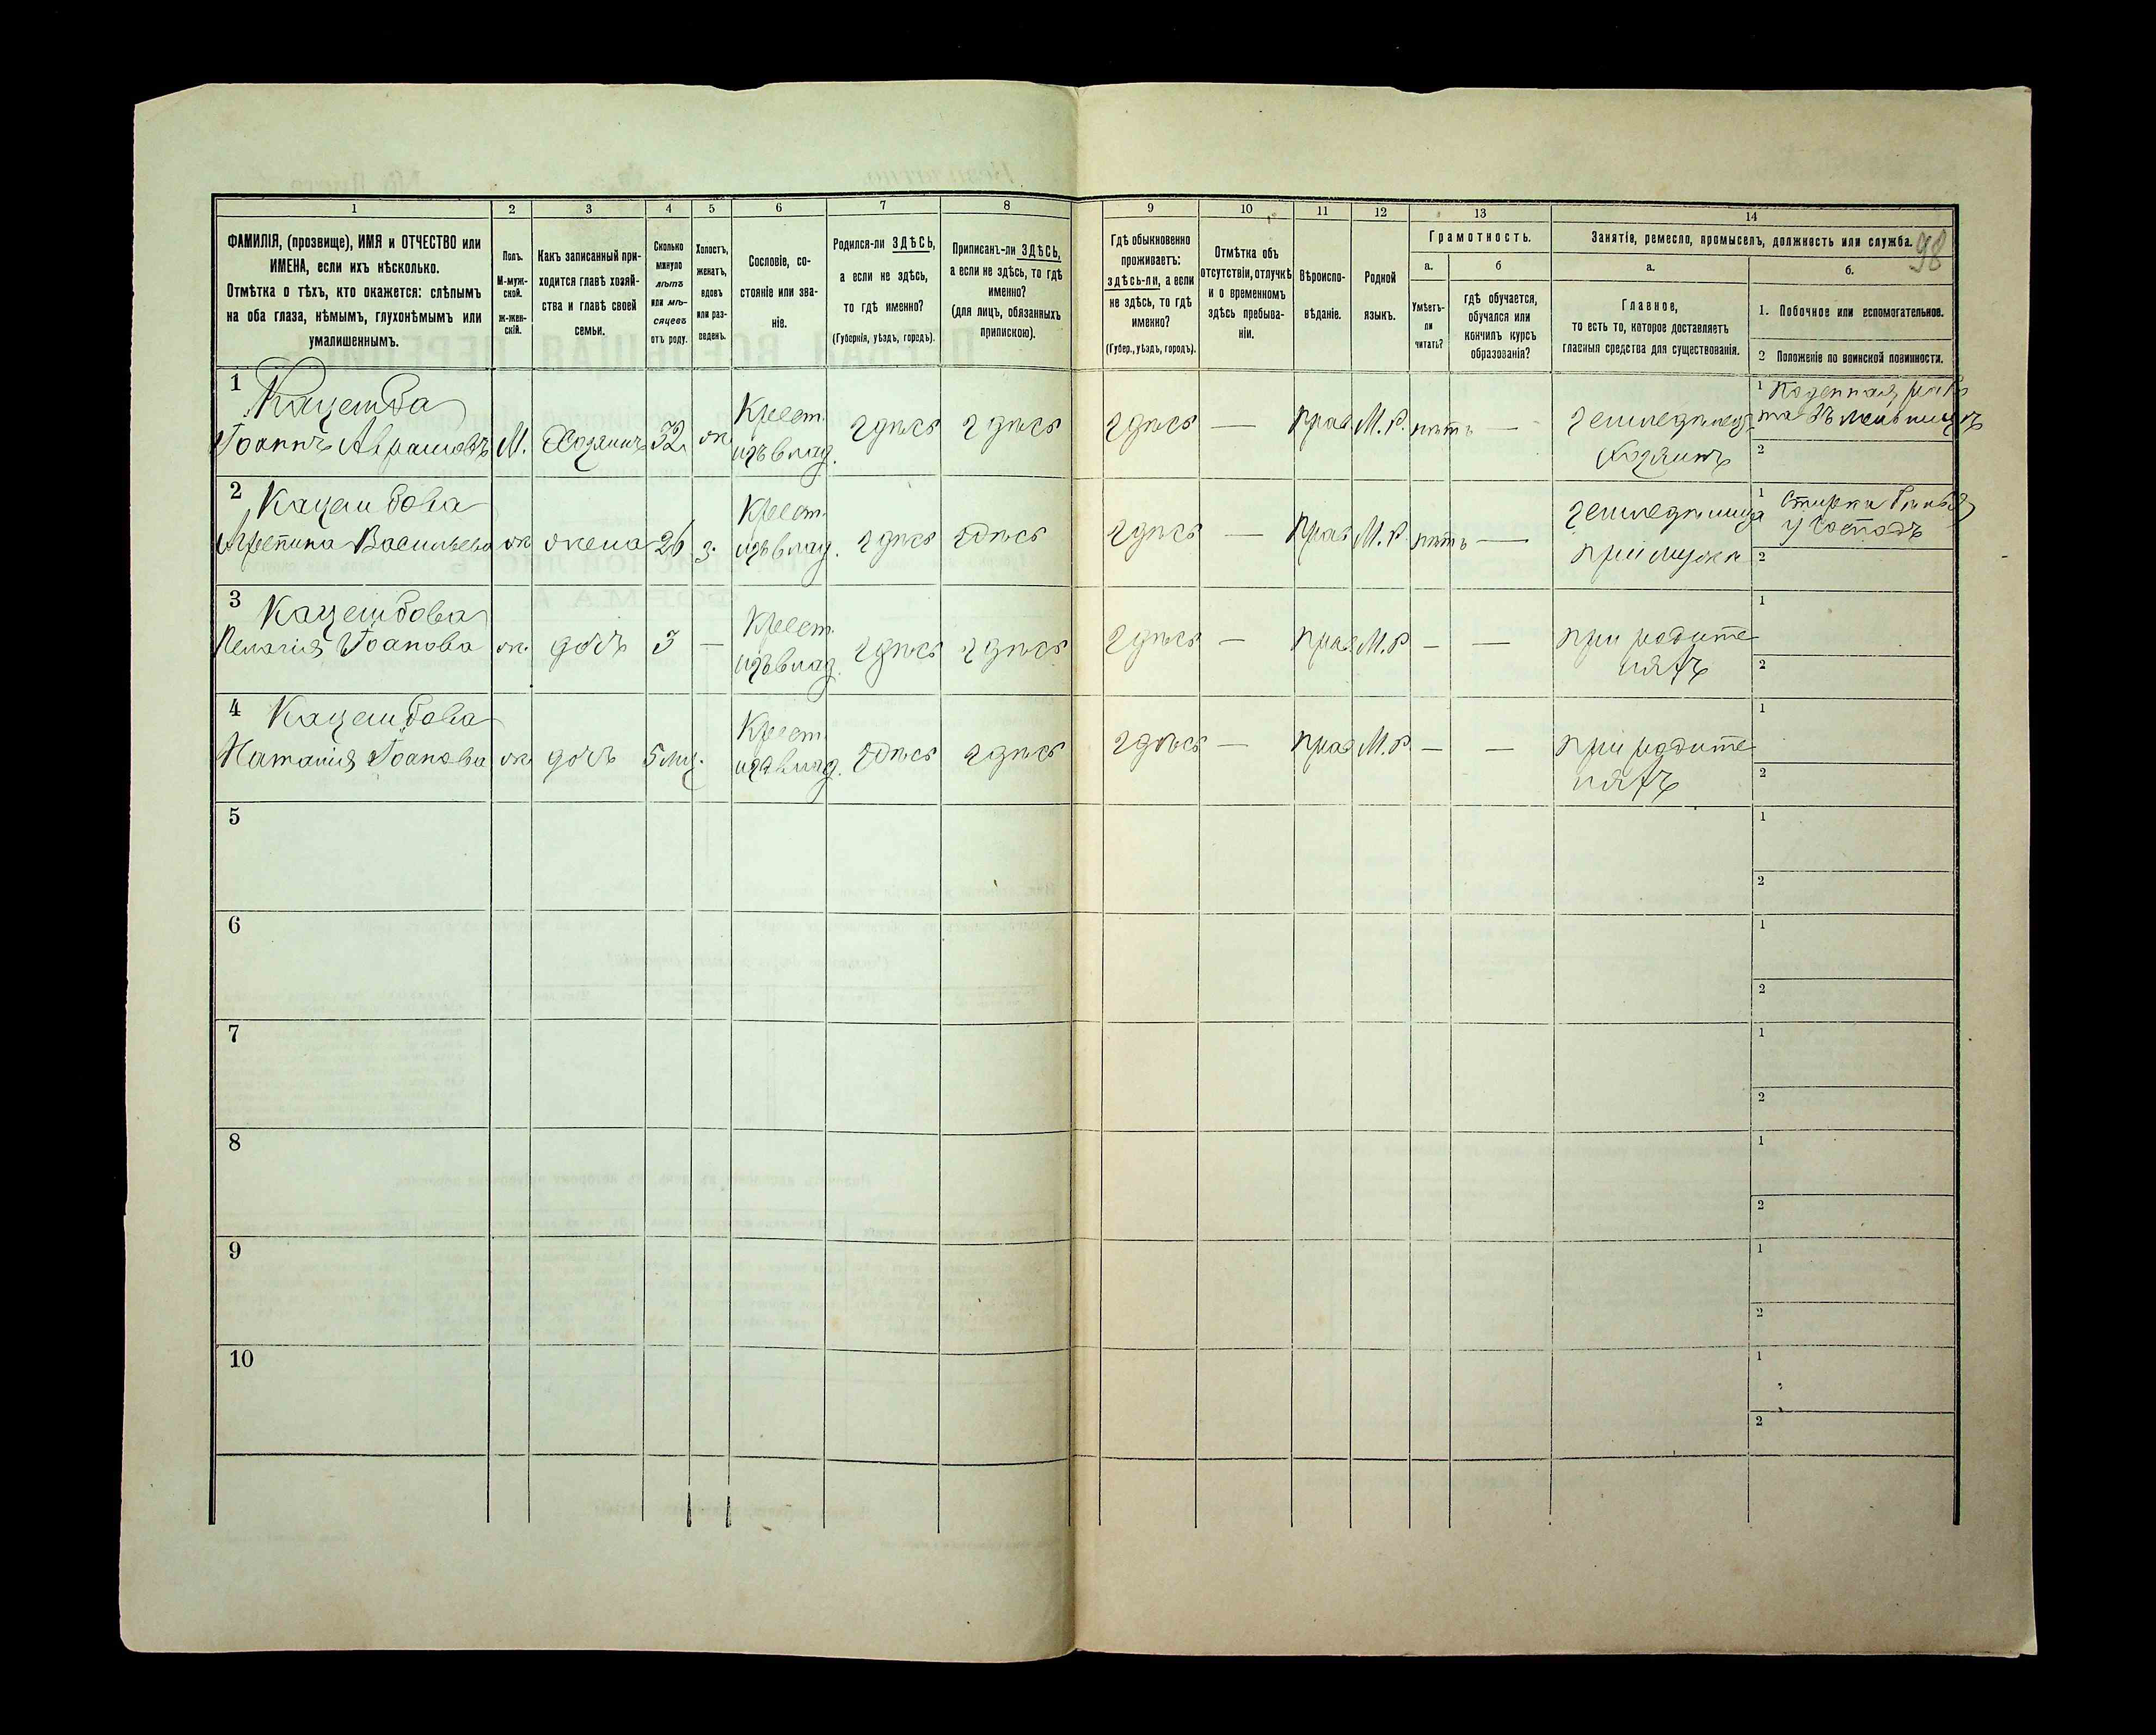 98
1
2
3
4
5
6
7
8
9
10
11
12
13
14
ФАМИЛІЯ, (прозвище), ИМЯ и ОТЧЕСТВО или
ИМЕНА, если ихъ нѣсколько.
Отмѣтка о тѣхъ, кто окажется: слѣпымъ
на оба глаза, нѣмымъ, глухонѣмымъ или
умалишеннымъ.
Полъ.
М-муж-
ской.
ж-жен-
скій.
Какъ записанный при-
ходится главѣ хозяй-
ства и главѣ своей
семьи.
Сколько
минуло
лѣтъ
или мѣ-
сяцевъ
отъ роду.
Холостъ,
женатъ,
вдовъ
или раз-
веденъ.
Сословіе, со-
стояніе или зва-
ніе.
Родился-ли ЗДѢСЬ,
а если не здѣсь,
то гдѣ именно?
(Губернія, уѣздъ, городъ).
Приписанъ-ли ЗДѢСЬ,
а если не здѣсь, то гдѣ
именно?
(для лицъ, обязанныхъ
припискою).
Гдѣ обыкновенно
проживаетъ:
здѣсь-ли, а если
не здѣсь, то гдѣ
именно?
(Губер., уѣздъ, городъ).
Отмѣтка объ
отсутствіи, отлучкѣ
и о временномъ
здѣсь пребыва-
ніи.
Вѣроиспо-
вѣданіе.
Родной
языкъ.
Грамотность.
а.
Умѣетъ-
ли
читать?
б
гдѣ обучается,
обучался или
кончилъ курсъ
образованія?
Занятіе, ремесло, промыселъ, должность или служба.
а.
Главное,
то есть то, которое доставляетъ
главныя средства для существованія.
б.
1. Побочное или вспомогательное.
2 Положеніе по воинской повинности.
1
Іоаннъ Аврамовъ
М.
Хозяинъ
32
ж
Крест.
изъ влад.
здѣсь
здѣсь
здѣсь
—
Прав
М. Р.
нѣтъ
—
Хозяинъ
1
2
2
Василіева
ж
жена
26
з.
Крест.
изъ влад.
здѣсь
здѣсь
здѣсь
—
Прав
М. Р.
нѣтъ
—
при мужѣ
1 Стирка бѣлья
у Господъ
2
3
Пелагія Іоанова
ж.
дочь
3
—
Крест.
изъ влад.
здѣсь
здѣсь
здѣсь
—
Прав
М. Р
—
—
при родите
ляхъ
1
2
4
Наталія Іоанова
ж
дочь
5 мц.
Крест.
изъ влад.
здѣсь
здѣсь
здѣсь
—
Прав
М. Р.
—
—
при родите
ляхъ
1
2
5
1
2
6
1
2
7
1
2
8
1
2
9
1
2
10
1
2